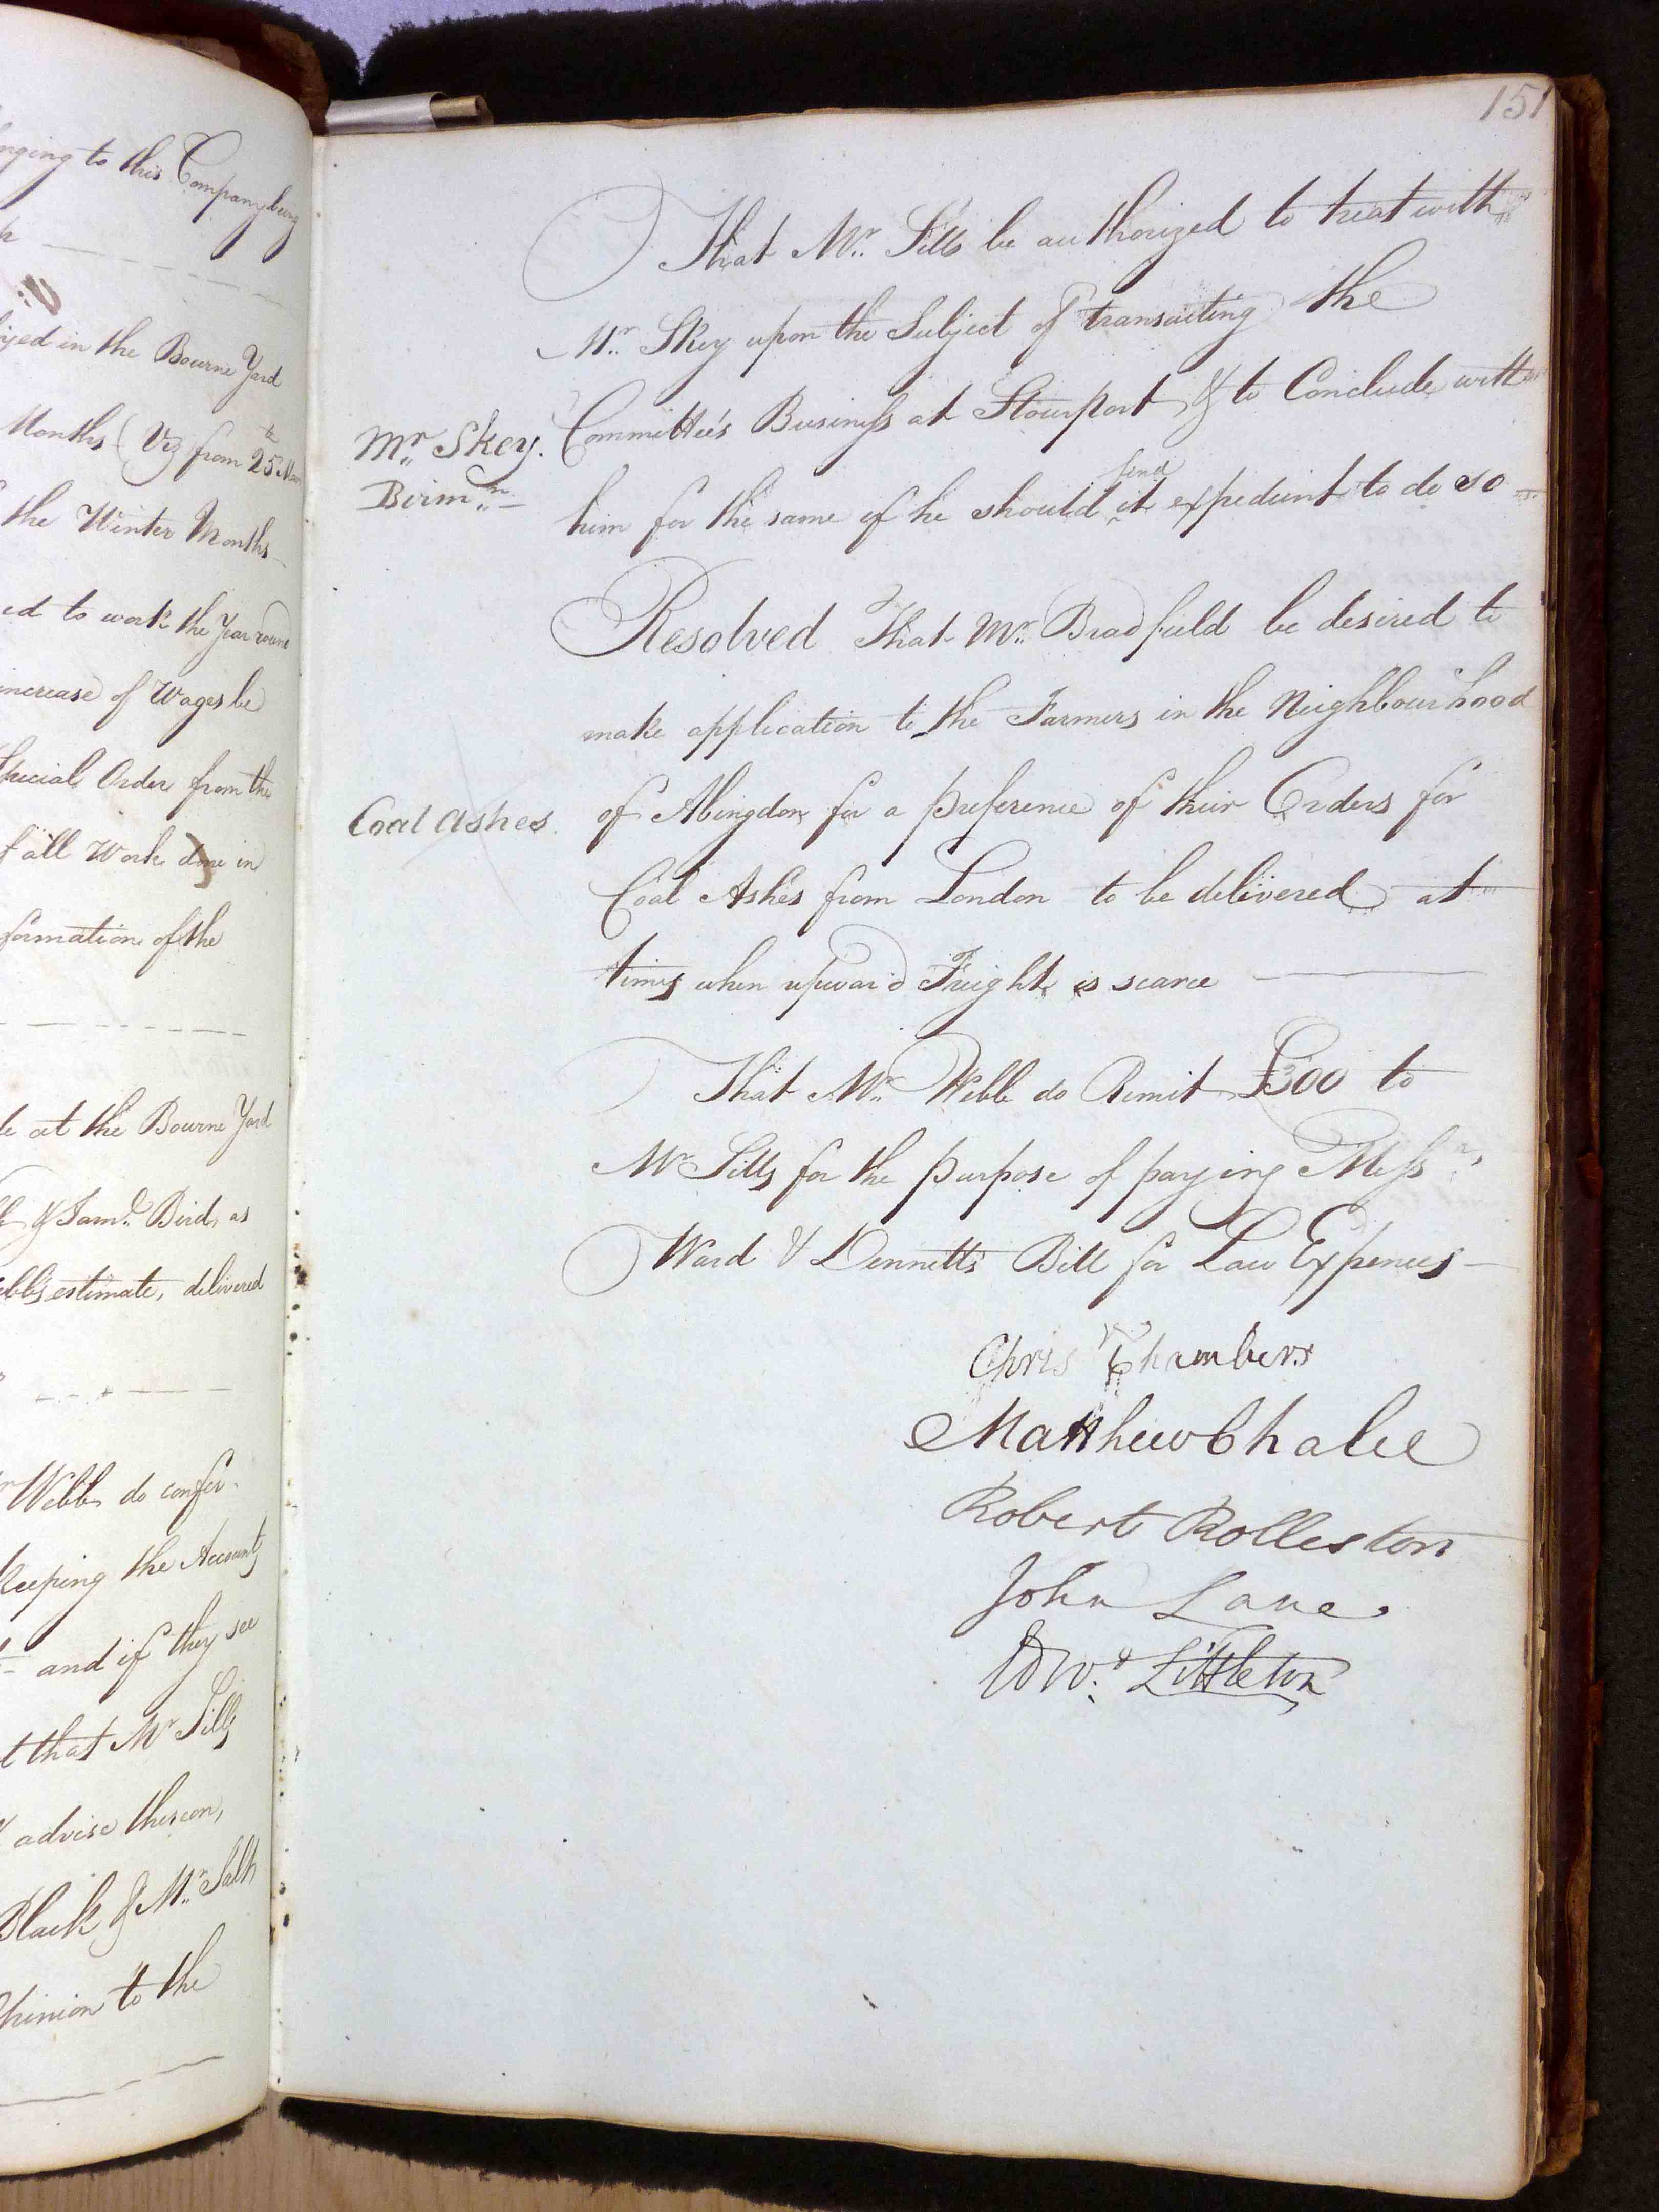 nging to this Company being
lized in the Bourne Yard
Months (Viz from 25th Mar
the Winter Months
ed to work the Year round
increase of Wages be
Special Order from the
f all Work done in
formation of the
at the Bourne Yard
& Saml. Bird, as
ebb's estimate, delivered
Mr Webb do confer
keeping the Accounts
and if they see
t that Mr Sills
advise thereon,
Black & Mr. Salh
Opinion to the
151
That Mr. Sills be authorized to treat with
Mr. Skey upon the Subject of transacting the
Mr. Skey. Birmm.
Committee's Business at Stourport, & to Conclude with
him for the same if he should find it expedient to do so
Resolved That Mr. Bradfield be desired to
make application to the Farmers in the Neighbourhood
Coal Ashes.
of Abingdon for a preference of their Orders for
Coal Ashes from London to be delivered at
times when upward Freight is scarce
That Mr. Webb do Remit £300 to
Mr Sills for the purpose of paying Messrs
Ward & Dennetts Bill for Law Expences
Chrisr Chambers
Matthew Chalie
Robert Rolleston
John Lane.
Edwd. Littleton